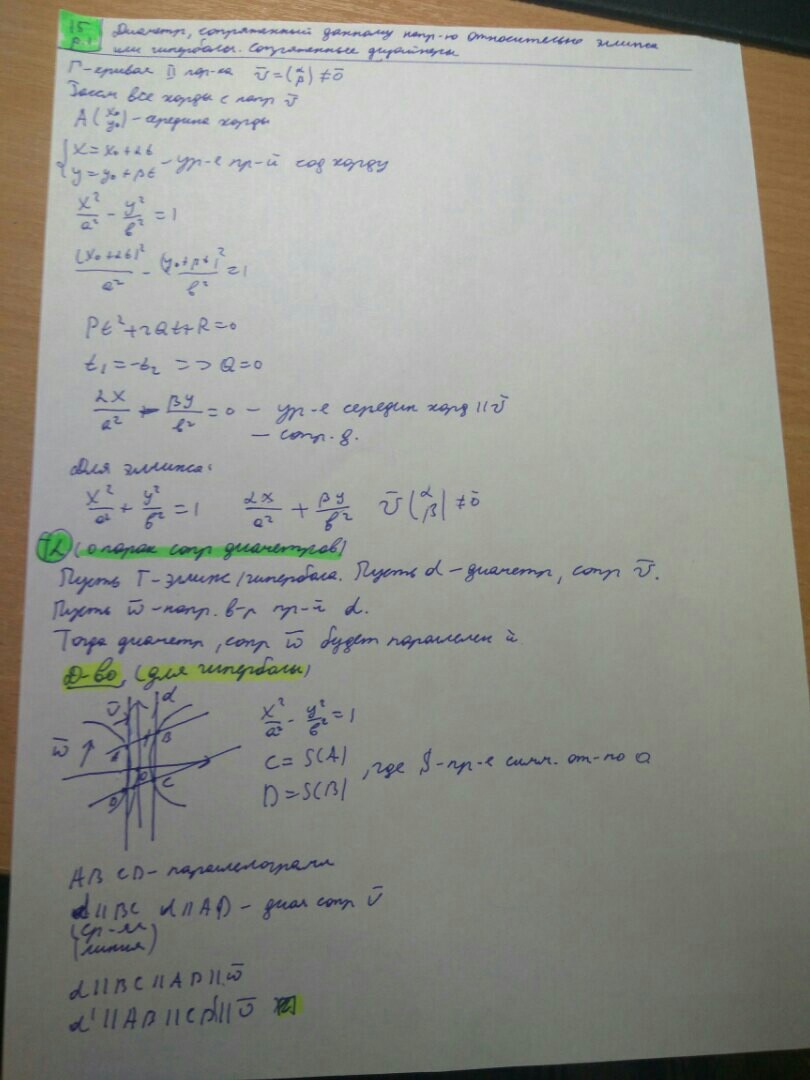 15
р.1
Диаметр, сопряженный данному напр-ю относительно эллипса
или гиперболы. Сопряженные диаметры
Г-кривая II пор-ка v̄=(α β)≠0̄
Тогда все хорды с напр v̄
A(x₀ y₀) - середина хорды
{x=x₀+αt
{y=y₀+βt - ур-е пр-й сод хорду
x²/a² - y²/b² = 1
(x₀+αt)²/a² - (y₀+βt)²/b² = 1
Pt²+2Qt+R=0
t₁=-t₂ => Q=0
αx/a² - βy/b² = 0 - ур-е середин хорд || v̄
- сопр. д.
Для эллипса:
x²/a² + y²/b² = 1 αx/a² + βy/b² v̄(α β) ≠ 0̄
(о парах сопр диаметров)
Пусть Г-эллипс/гипербола. Пусть d-диаметр, сопр v̄.
Пусть w̄-напр. в-р пр-й d.
Тогда диаметр, сопр w̄ будет параллелен
Д-во, (для гиперболы)
v̄ d
w̄ A B
O
D C
x²/a² - y²/b² = 1
C = S(A)
D = S(B)
, где S-пр-е симм. от-но O
ABCD - параллелограмм
d || BC d || AD - диам сопр v̄
(ср-яя
линия)
d || BC || AD || w̄
d' || AB || CD || v̄